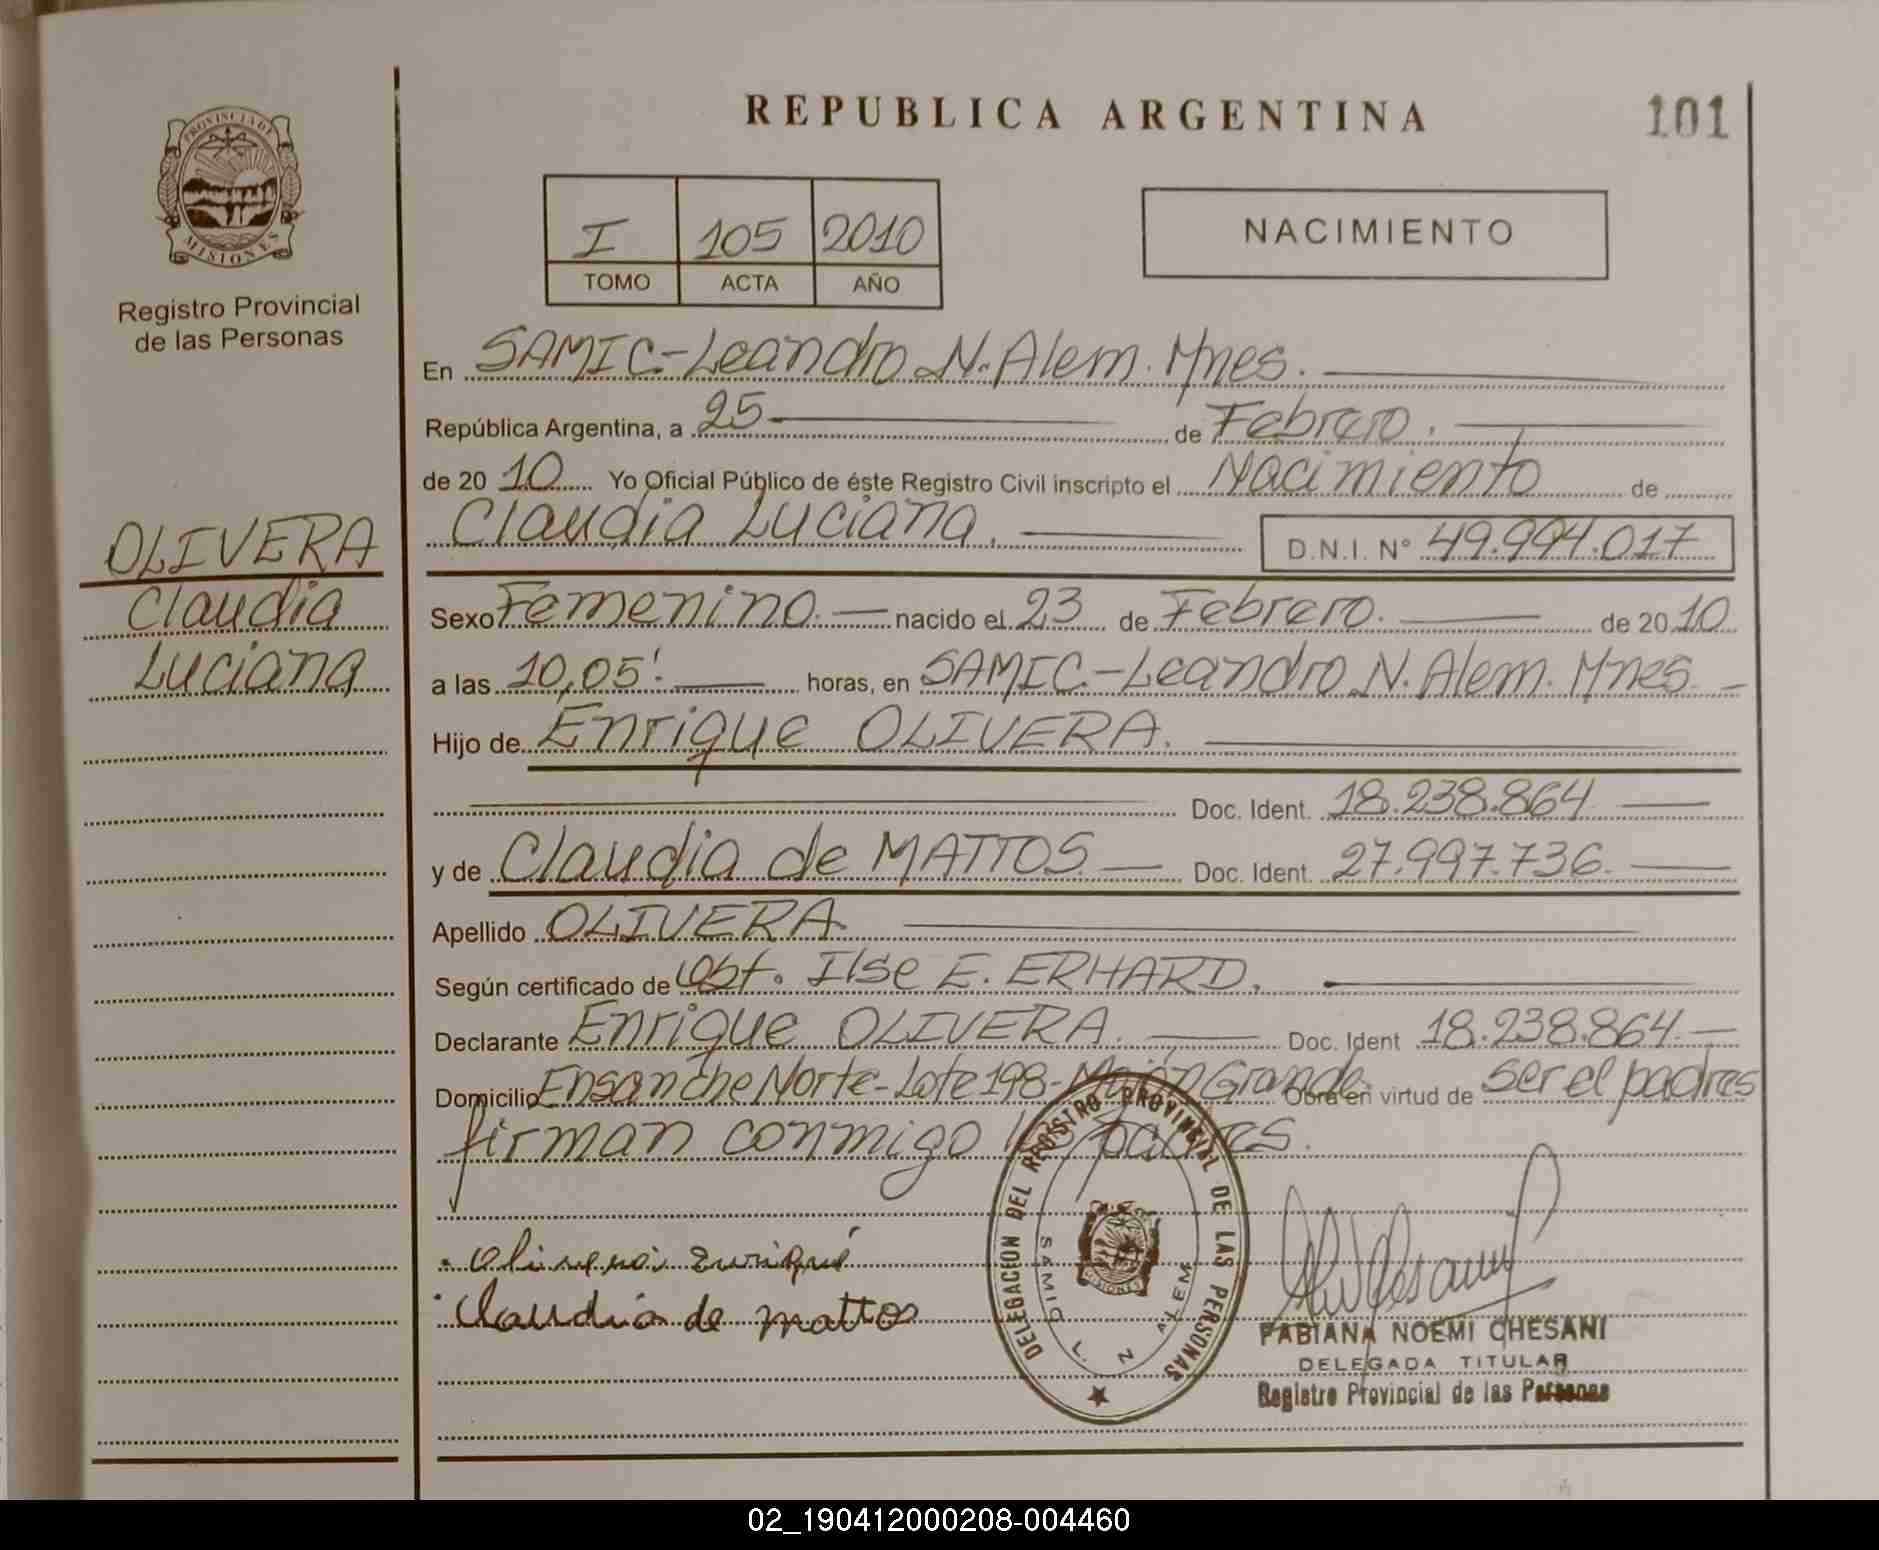 REPUBLICA ARGENTINA
101
PROVINCIA DE
MISIONES
Registro Provincial
de las Personas
I 105 2010
TOMO ACTA AÑO
NACIMIENTO
En SAMIC-Leandro N. Alem. Mnes.
República Argentina, a 25 de Febrero.
de 2010 Yo Oficial Público de éste Registro Civil inscripto el Nacimiento de
Claudia Luciana. D.N.I. N° 49.994.017
OLIVERA
Claudia
Luciana
Sexo Femenino. nacido el 23 de Febrero. de 2010
a las 10,05'. horas, en SAMIC-Leandro N. Alem. Mnes.
Hijo de Enrique OLIVERA.
Doc. Ident. 18.238.864
y de Claudia de MATTOS Doc. Ident. 27.997.736.
Apellido OLIVERA
Según certificado de Obst. Ilse E. ERHARD.
Declarante Enrique OLIVERA. Doc. Ident 18.238.864.
Domicilio Ensanche Norte-Lote 198-Mojón Grande. Obra en virtud de ser el padres
firman conmigo los padres.
Olivera Enrique
Claudia de mattos
DELEGACION DEL REGISTRO PROVINCIAL DE LAS PERSONAS
SAMIC L. N ALEM
MISIONES
FABIANA NOEMI CHESANI
DELEGADA TITULAR
Registro Provincial de las Personas
02_190412000208-004460